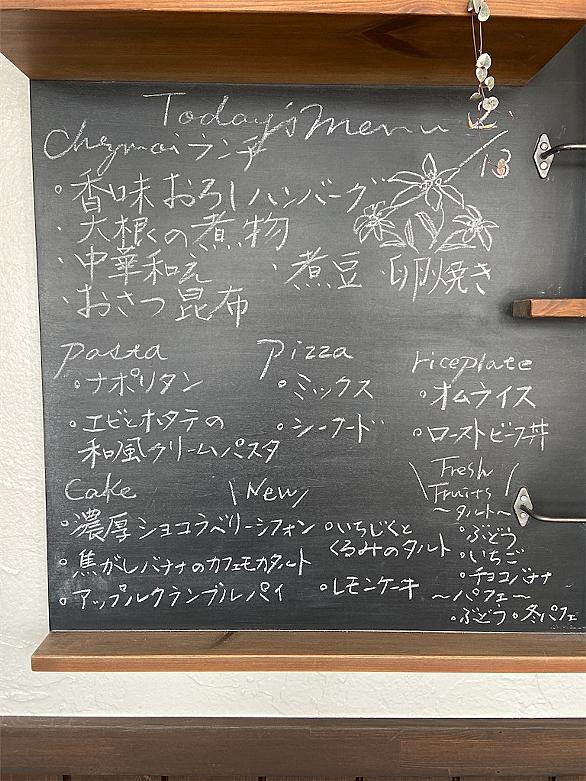 Today's menu 2/13
Chezmoiランチ
・香味おろしハンバーグ
・大根の煮物
・中華和え ・煮豆 ・卵焼き
・おさつ昆布
Pasta
・ナポリタン
・エビとホタテの
和風クリームパスタ
Pizza
・ミックス
・シーフード
riceplate
・オムライス
・ローストビーフ丼
Cake \New/
・濃厚ショコラベリーシフォン
・焦がしバナナのカフェモカタルト
・アップルクランブルパイ
・いちじくと
くるみのタルト
・レモンケーキ
\Fresh/
Fruits
～タルト～
・ぶどう
・いちご
・チョコバナナ
～パフェ～
・ぶどう・冬パフェ